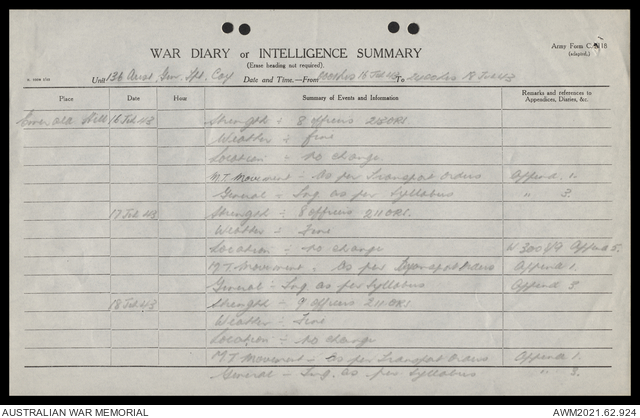 Army Form C.2118
(adapted.)
WAR DIARY or INTELLIGENCE SUMMARY
(Erase heading not required).
Unit 136 Aust. Gen. Tpt. Coy Date and Time.—From 0001hrs 16 Feb 43 To 2400hrs 18 Feb 43
Place Date Hour Summary of Events and Information Remarks and references to Appendices, Diaries, &c.
Emerald Hill 16 Feb 43 Strength :- 8 officers 213 ORS.
Weather :- fine
Location :- no change
M.T. Movement :- As per Transport Orders Append. 1.
General :- Tng as per Syllabus " 3.
17 Feb 43 Strength :- 8 officers 211 ORS.
Weather :- Fine
Location :- no change Append 5.
M.T. Movement :- As per Transport Orders Append 1.
General :- Tng as per Syllabus Append 3
18 Feb 43 Strength :- 9 officers 211 ORS
Weather :- Fine
Location :- no change
M.T. Movement :- As per Transport Orders Append 1.
General :- Tng. as per Syllabus " 3.
AUSTRALIAN WAR MEMORIAL AWM2021.62.924